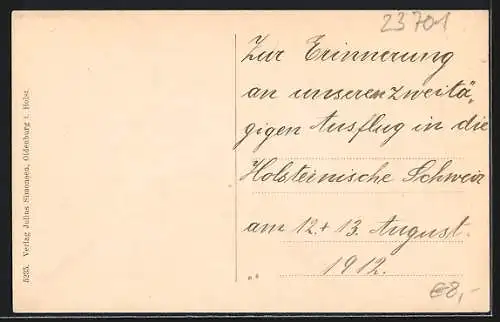 23701
Zur Erinnerung
an unseren zweitä„
gigen Ausflug in die
Holsteinische Schweiz
am 12. + 13. August.
1912.
€8,-
5225. Verlag Julius Simonsen, Oldenburg i. Holst.